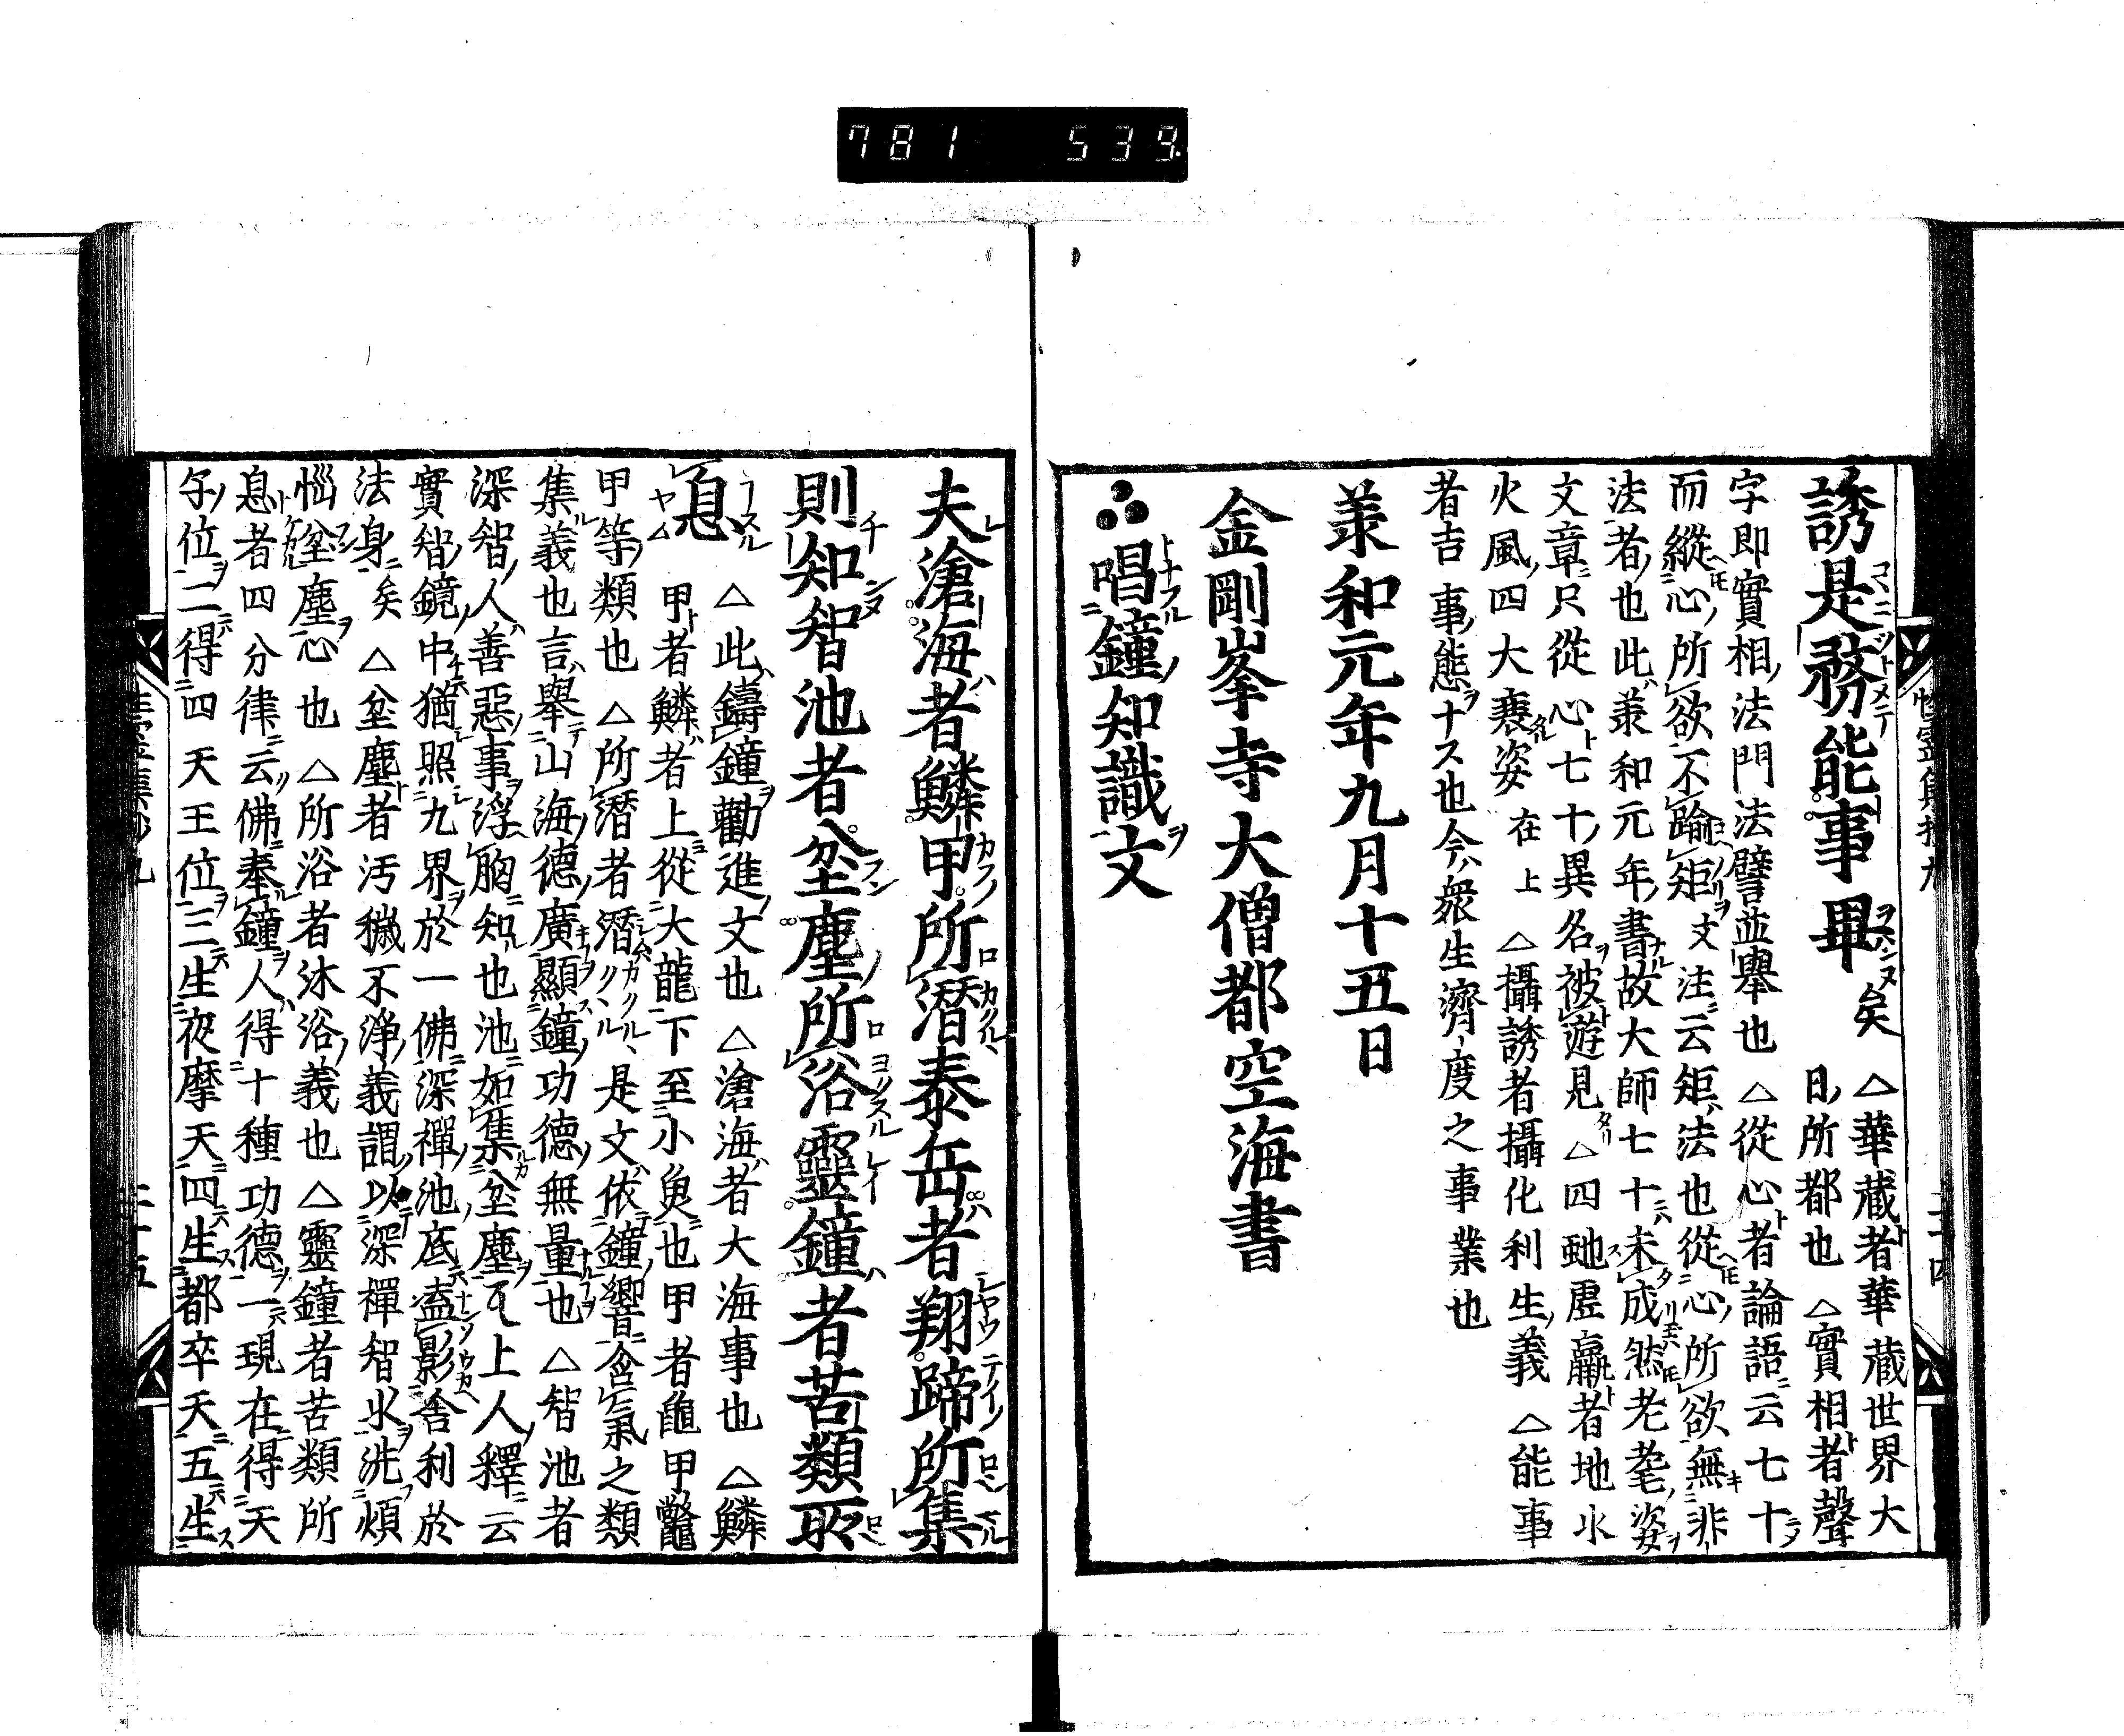 781 539.
誘是務能事畢矣 △華藏者華藏世界大
日所都也 △實相者聲
字即實相法門法譬並舉也 △從心者論語云七十
而縱心所欲不踰矩文注云矩法也從心所欲無非
法者也此羕和元年書故大師七十未成然老耄姿
文章只從心七十異名被遊見 △四虵虗羸者地水
火風四大衰姿在上 △攝誘者攝化利生義 △能事
者吉事態ナス也今衆生濟度之事業也
羕和元年九月十五日
金剛峯寺大僧都空海書
唱鐘知識文
夫滄海者鱗甲所潛泰岳者翔蹄所集
則知智池者坌塵所浴靈鐘者苦類所
息 △此鑄鐘勸進文也 △滄海者大海事也 △鱗
甲者鱗者上從大龍下至小魚也甲者龜甲鼈
甲等類也 △所潛者潛カクルヽ是文依鐘響含氣之類
集義也言舉山海德廣顯鐘功德無量也 △智池者
深智人善惡事浮胸知也池如集坌塵上人釋云
實智鏡中猶照九界於一佛深禪池底盍影舍利於
法身矣 △坌塵者汚穢不淨義謂以深禪智水洗煩
惱坌塵心也 △所浴者沐浴義也 △靈鐘者苦類所
息者四分律云佛奉鐘人得十種功德一現在得天
子位二得四天王位三生夜摩天四生都卒天五生